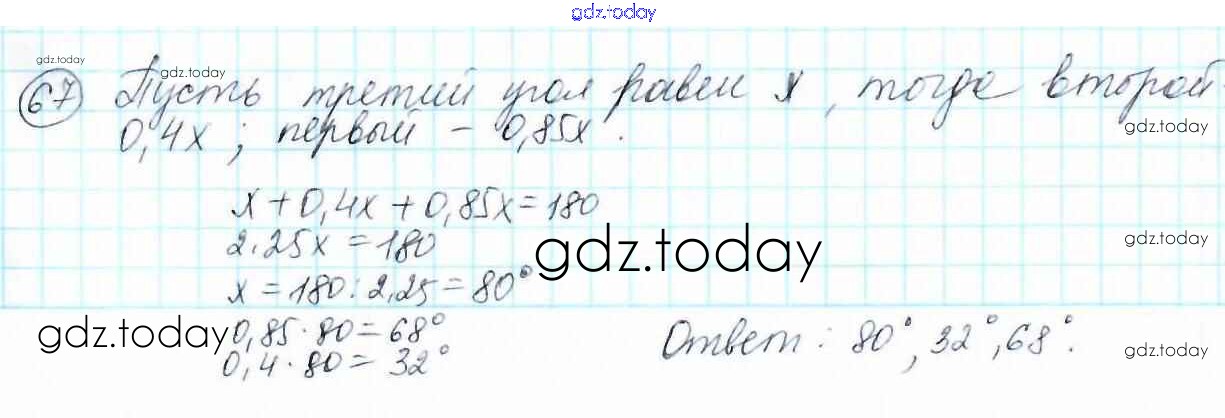 gdz.today
gdz.today
gdz.today
67 Пусть третий угол равен x, тогда второй
0,4x; первый - 0,85x.
gdz.today
x+0,4x+0,85x=180
2.25x=180
gdz.today
gdz.today
x=180:2,25=80°
gdz.today
0,85·80=68°
0,4·80=32°
Ответ: 80°, 32°, 68°.
gdz.today